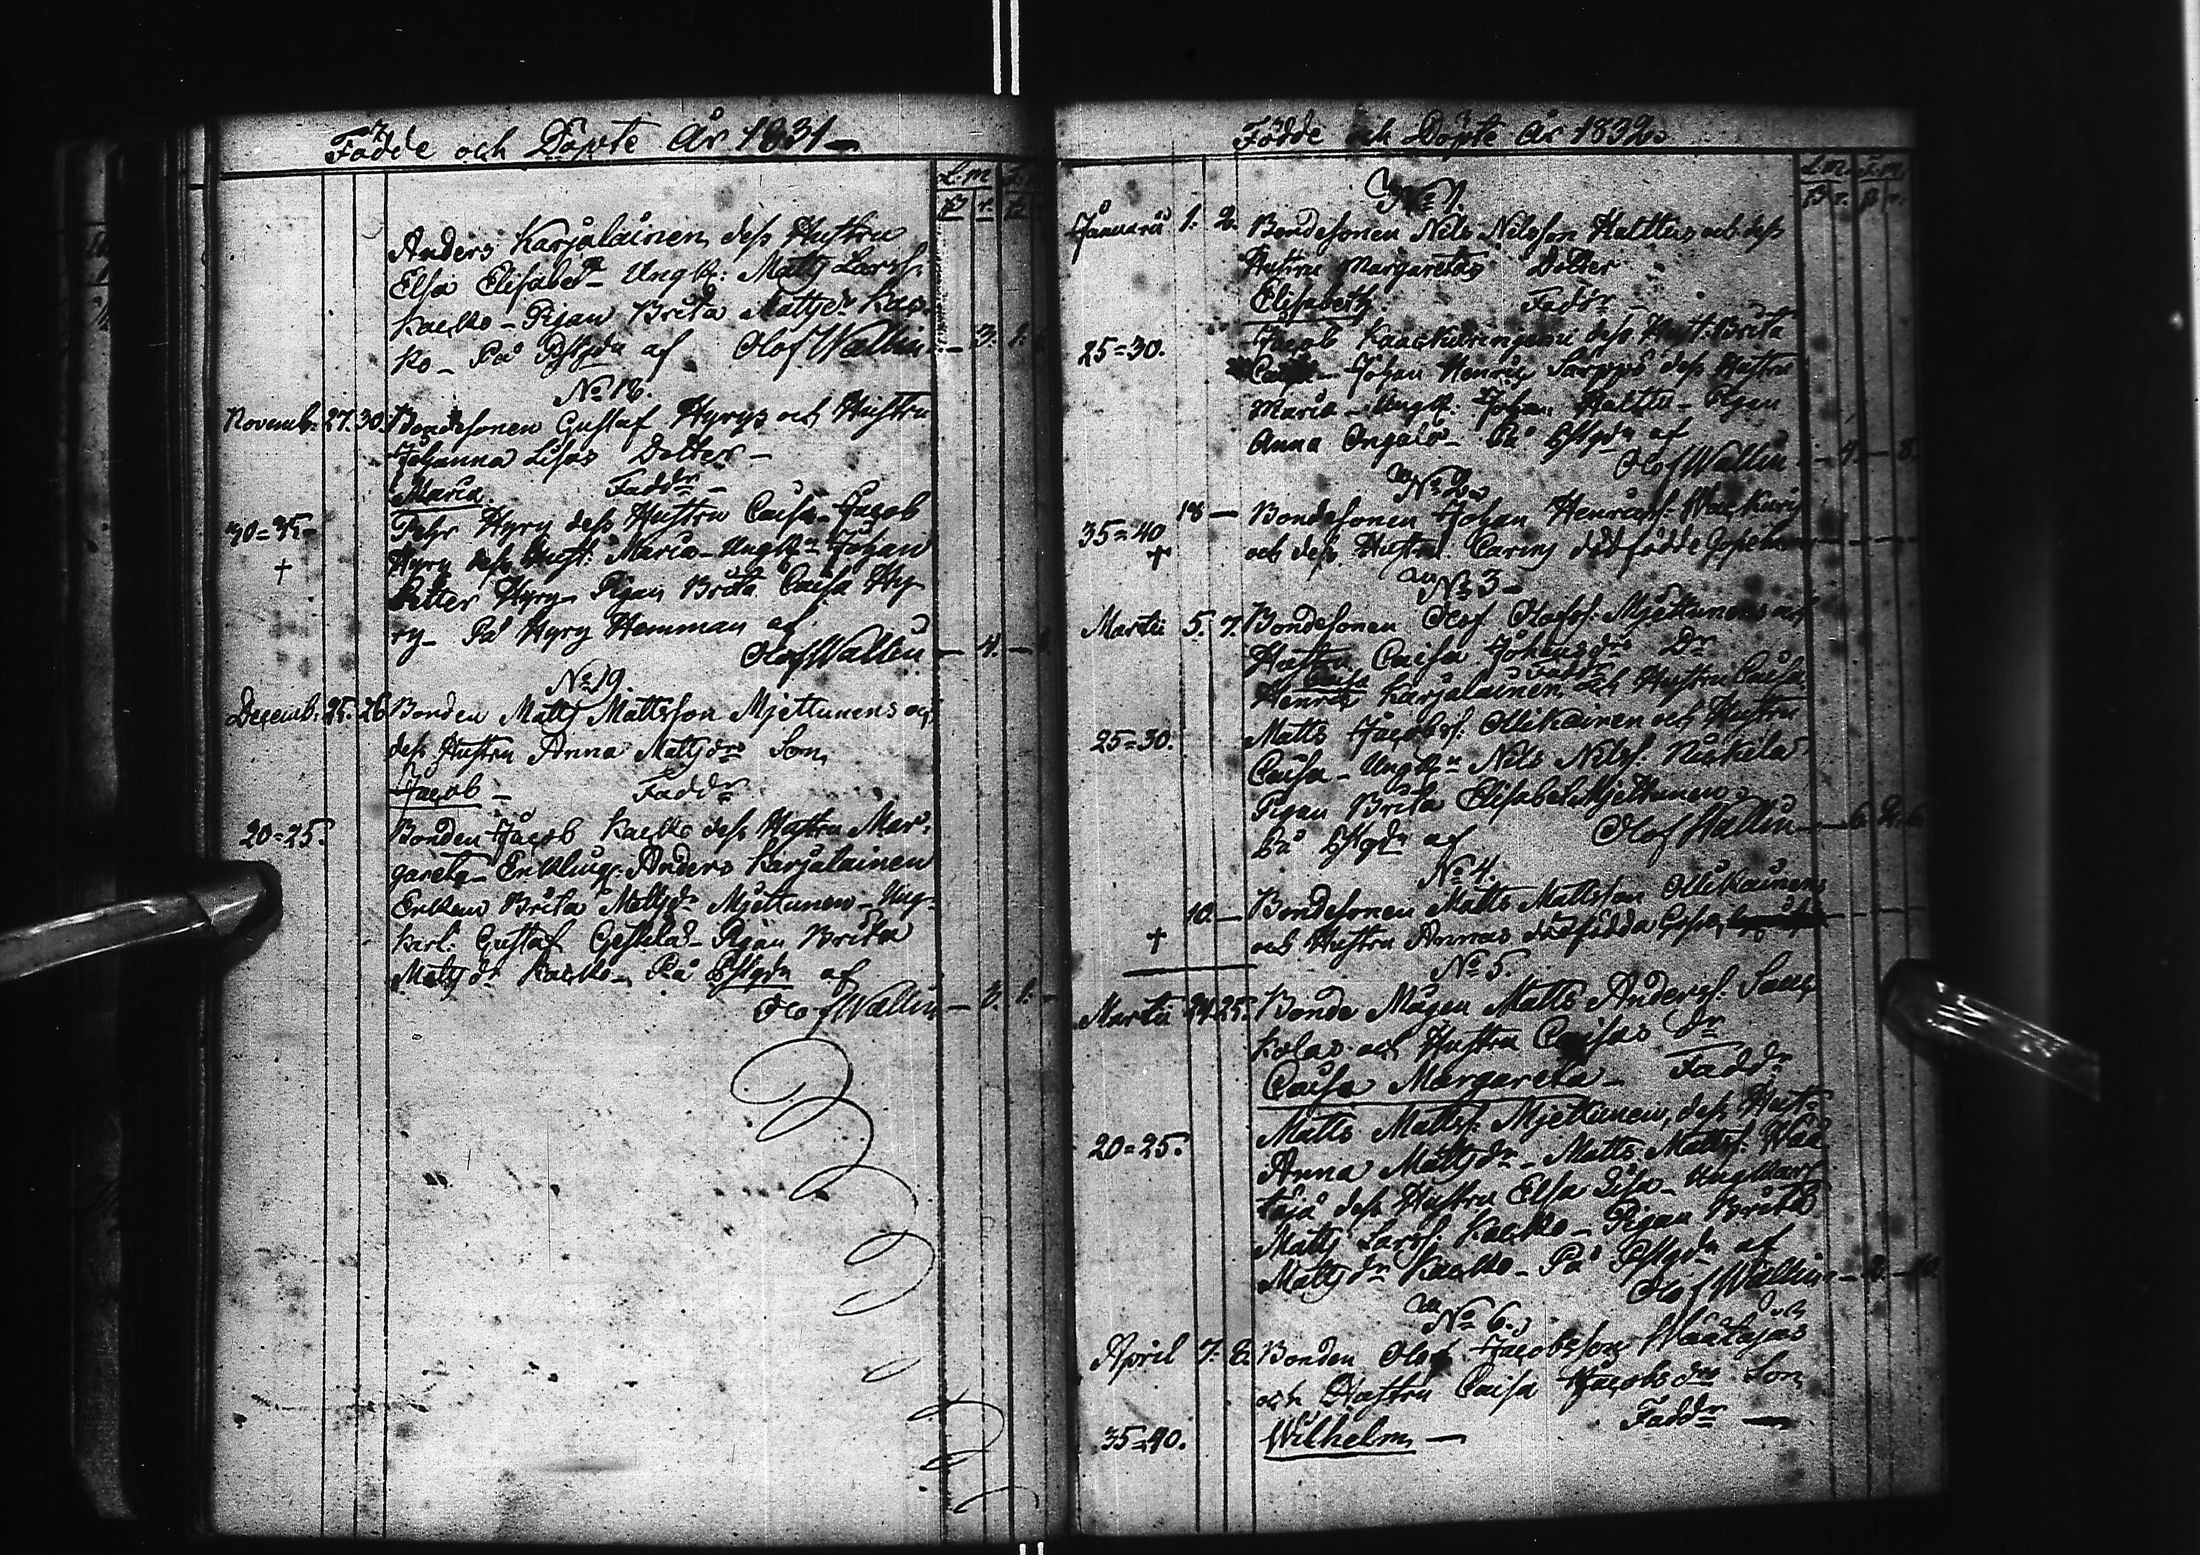 Födde och Döpte År 1831
L. m
Anders Karjalainen, dess Hustru
Elsa Elisabet - Ungk: Matts Larss:
Kacko - Pigan Brita Mattsdr Kac-
ko - På Pstgdn af Olof Wallin - 3. 1.
No 18.
Novemb. 27. 30. Bondesonen Gustaf Hyrys och Hustru
Johanna Lisas Dotter -
Maria. Faddr -
30=35. Pehr Hyry dess Hustru Caisa - Jacob
Hyry dess Hust: Maria - Ungk: Johan
+
Petter Hyry - Pigan Brita Caisa Hy-
ry - På Hyry Hemman af
Olof Wallin - 4. -
No 19.
Decemb. 25. 26 Bonden Matts Mattsson Mjettunens och
dess Hustru Anna Mattsdrs Son
Jacob - Faddr
20=25. Bonden Jacob Kacko dess Hustru Mar-
gareta - Enkling: Anders Karjalainen
Enkan Brita Mattsdr Mjettunen - Ung-
karl: Gustaf - Pigan Brita
Mattsdr Kacko - På Pstgdn af
Olof Wallin - 3. 1. -
Födde och Döpte År 1832.
No 1.
Januarii 1. 2. Bondesonen Nils Nilsson Halttus och dess
Hustru Margaretas Dotter
Elisabeth. Faddr -
25=30. Jacob dess Hust: Brita
Caisa - Johan Henric Särpps dess Hustru
Maria - Ungk: Johan Halttu - Pigan
Anna - På Pstgdn af
Olof Wallin
No 2.
18 - Bondesonen Johan Henricss:
35=40 och dess Hustru Carins dödfödde
+
No 3 -
Martii 5. 7. Bondesonen Olof Olofss: Mjettunens och
Hustru Caisa Johansdrs Dr
Caisa Faddr
Henric Karjalainen och Hustru Caisa
25=30. Matts Jacobss: Ollikainen och Hustru
Caisa - Ungk: Nils Nilss:
Pigan Brita Elisabet Mjettunen -
På Pstgdn af Olof Wallin
No 4.
10. - Bondesonen Matts Mattsson Ollikainens
+ och Hustru Annas dödfödda
No 5.
Martii 24. 25. Bonde Mågen Matts Anderss:
kolas och Hustru Caisas Dr
Caisa Margareta - Faddr
Matts Mattss: Mjettunen, dess Hust:
20=25. Anna Mattsdr - Matts Mattss: Waa
taja dess Hustru Elsa Lisa - Ungkarl
Matts Larss: Kacko - Pigan Brita
Mattsdr Kacko - På Pstgdn af
Olof Wallin
No 6.
April 7. 8. Bonden Olof Jacobssons Waatajas
och Hustru Caisa Jacobsdrs Son
35=40. Wilhelm - Faddr -